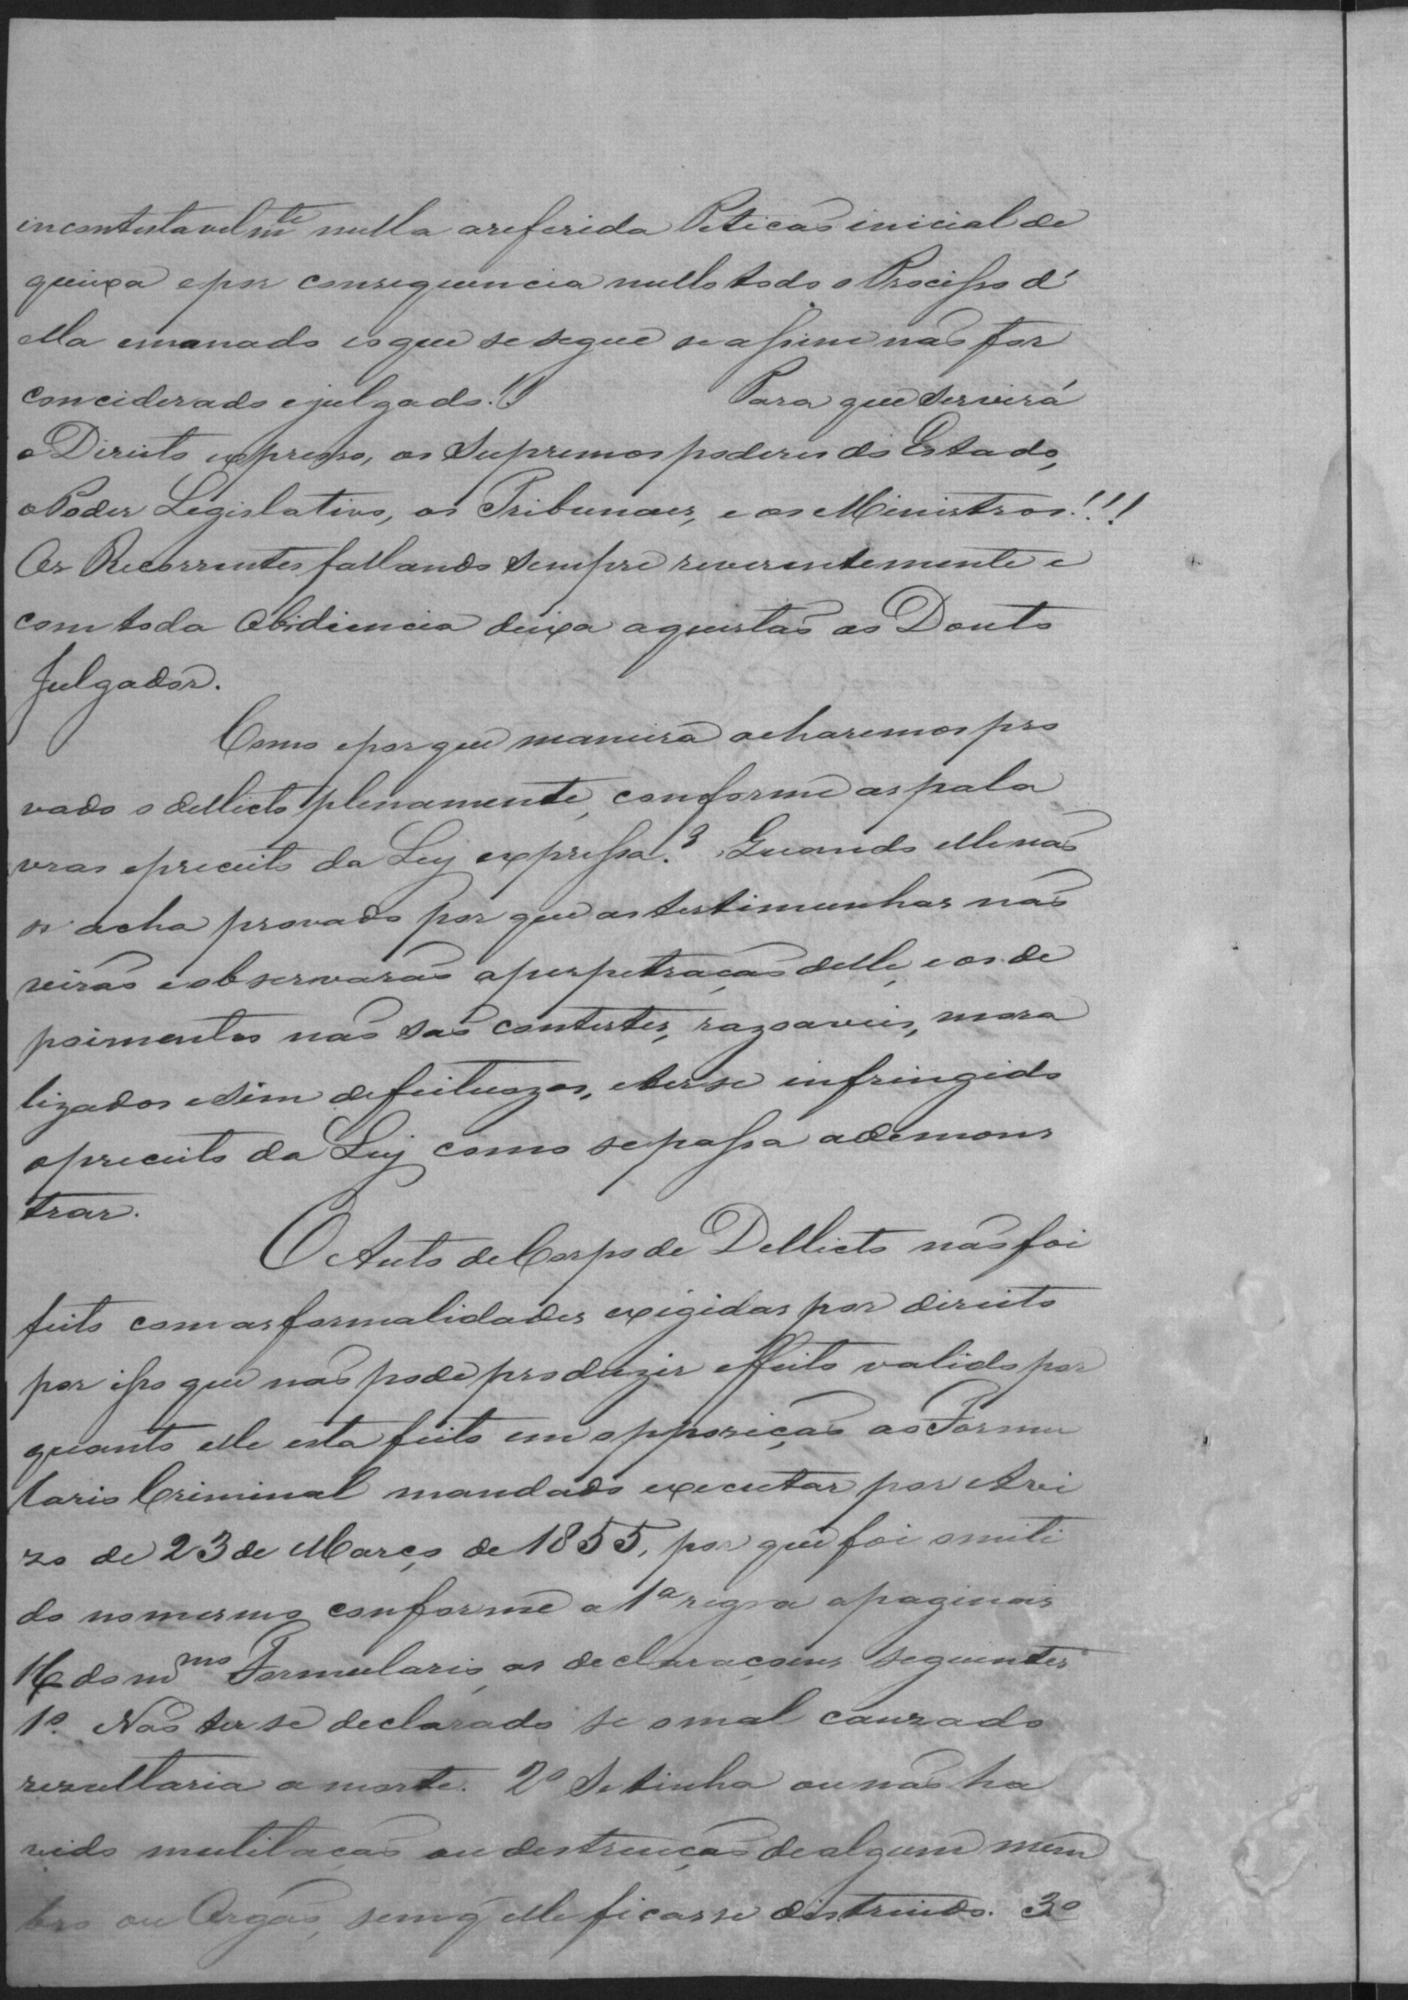 incontestavelmte nulla a referida Peticão inicial de
queixa e por consequencia nullo todo o Processo d'
ella emanado é o que se segue se assim não for
conciderado e julgado.!! Para que servirá
o Direito expresso, os Supremos poderes do Estado,
o Poder Legislativo, os Tribunaes, e os Ministros!!!
Os Recorrentes fallando sempre reverentemente e
com toda Obidiencia deixa a questão ao Douto
Julgador.
Como e por que maneira acharemos pro
vado o dellicto plenamente, conforme as pala
vras e preceito da Ley expressa.? Quando elle não
se acha provado por que as testimunhas não
virão e observarão a perpetração delle, e os de
poimentos não são contestes, razoaveis, mora
lizados e sim defeituozos, e ter se infringido
o preceito da Ley como se passa a demons
trar.
O Auto de Corpo de Dellicto não foi
feito com as formalidades exigidas por direito
por isso que não pode produzir effeito valido por
quanto elle esta feito em opposição ao Formu
lario Criminal mandado executar por Avi
zo de 23 de Março de 1855, por que foi omiti
do no mesmo conforme a 1ª regra a paginas
16 do mmo Formulario, as declaraçoens seguintes
1º. Não ter se declarado se o mal cauzado
rezultaria a morte. 2º Se tinha ou não ha
vido mutilação ou destruição de algum mem
bro ou Orgão, sem q elle ficasse distruido. 3º